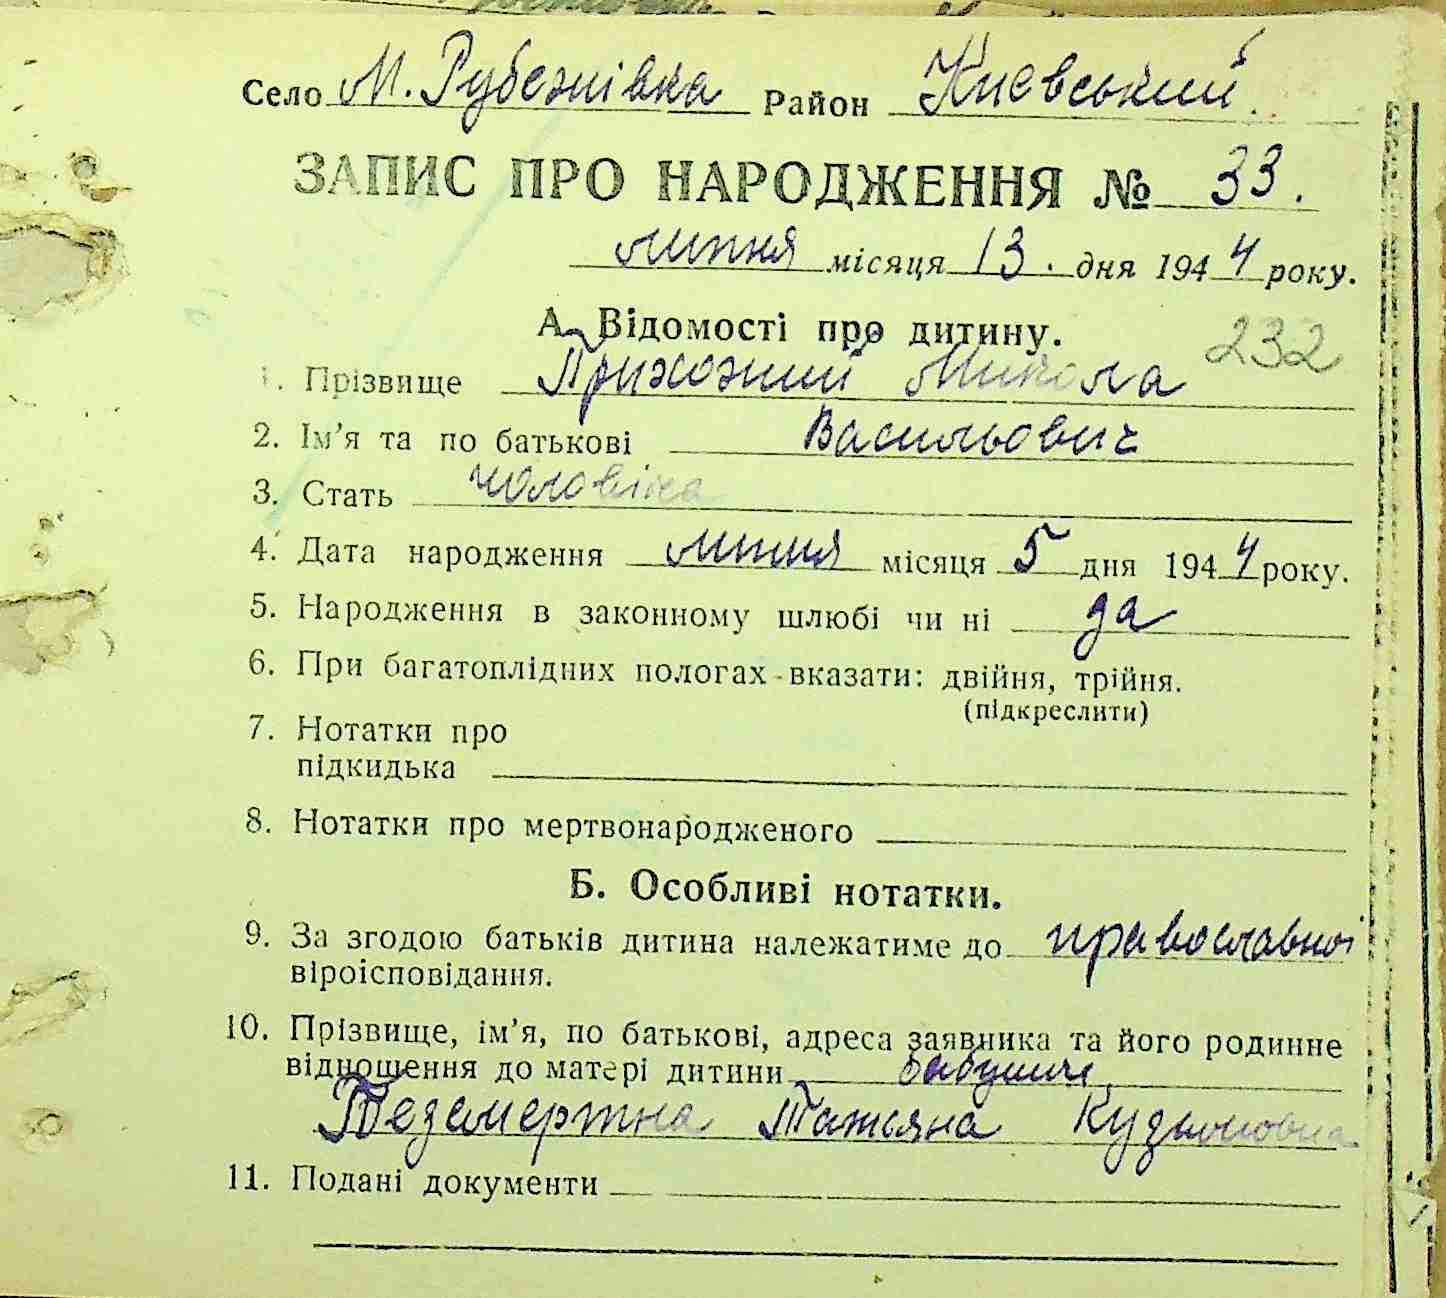 Село М. Рубежівка Район Києвський.
ЗАПИС ПРО НАРОДЖЕННЯ № 33.
липня місяця 13. дня 1944 року.
А. Відомості про дитину. 232
1. Прізвище Прихожий Микола
2. Ім’я та по батькові Васильович
3. Стать чоловіча
4. Дата народження липня місяця 5 дня 1944 року.
5. Народження в законному шлюбі чи ні да
6. При багатоплідних пологах вказати: двійня, трійня.
(підкреслити)
7. Нотатки про
підкидька
8. Нотатки про мертвонародженого
Б. Особливі нотатки.
9. За згодою батьків дитина належатиме до православної
віроісповідання.
10. Прізвище, ім’я, по батькові, адреса заявника та його родинне
відношення до матері дитини
Безсмертна Татьяна Кузьмовна
11. Подані документи